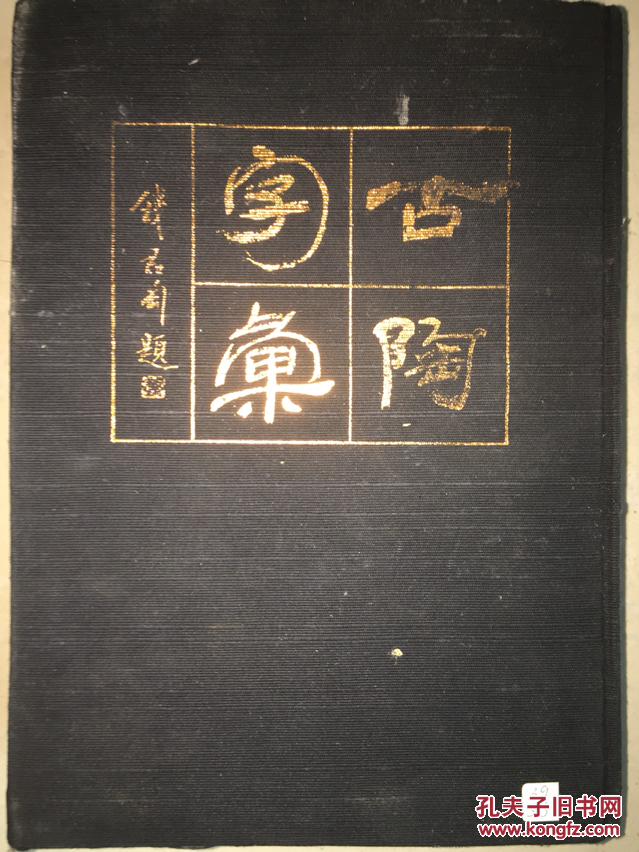 古陶
字彙
錢君匋題
39
孔夫子旧书网
www.kongfz.com